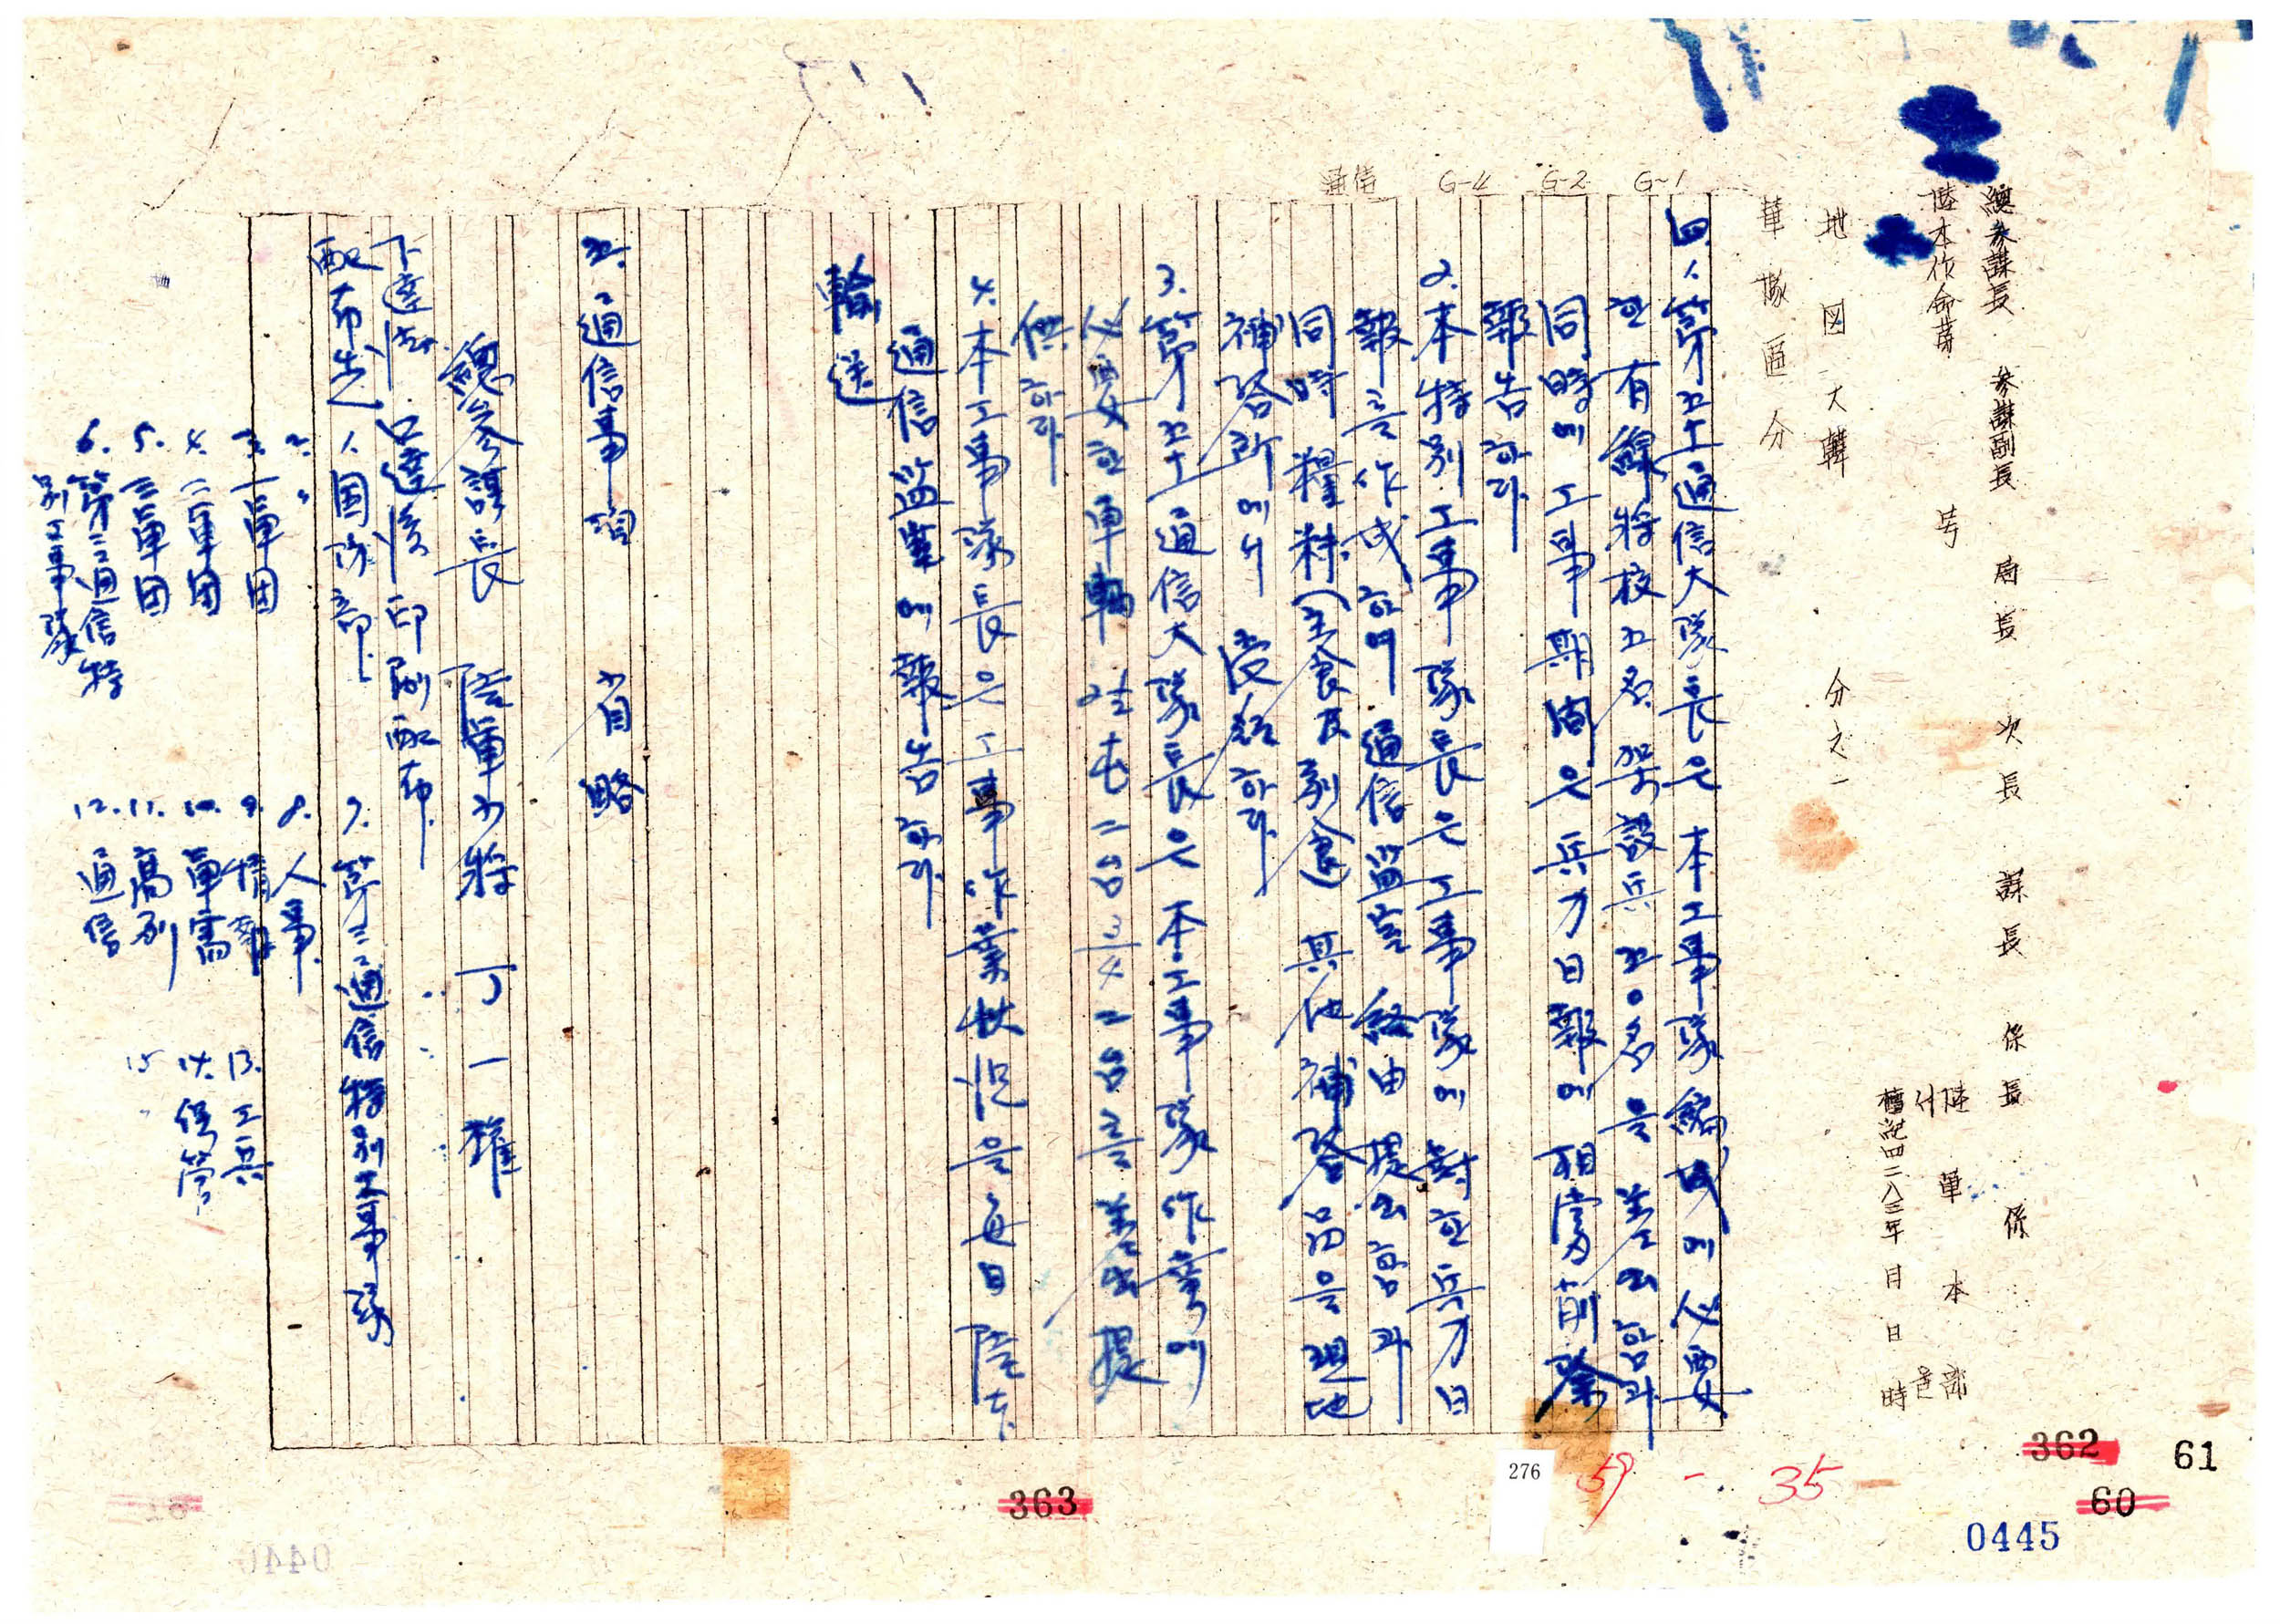 總參謀長 參謀副長 局長 次長 課長 係長 係
陸本作命第 号
陸軍本部
서울
檀紀四二八三年 月 日 時
地図 大韓 分之一
軍隊區分
G-1
G-2
G-4
通信
四、1、第五十通信大隊長은 本工事隊編成에 必要
한 有線將校五名 架設兵 五〇名을 差出함과
同時에 工事期間은 兵力日報에 相當削除
報告하라
2. 本特別工事隊長은 工事隊에 對한 兵力日
報를 作成하여 通信監室 経由 提出함과
同時 糧秣(主食及副食) 其他 補給品을 現地
補給所에서 受領하라
3. 第五十通信大隊長은 本工事隊 作業에
必要한 車輛 2½屯 二台 3/4 二台를 差出 提
供하라
4. 本工事隊長은 工事作業狀況을 每日 陸本
通信監室에 報告하라
輸送
五. 通信事項 省略
總參謀長 陸軍少將 丁一權
下達法. 口達後 印刷配布
配布先 1. 国防部. 7. 第三通信特別工事隊
2. 〃 8. 人事
3. 一軍団 9. 情報 13. 工兵
4. 二軍団 10. 軍需 14. 保管
5. 三軍団 11. 高副 15
6. 第三通信特 12. 通信
別工事隊
276
59 - 35
362
61
60
0445
363